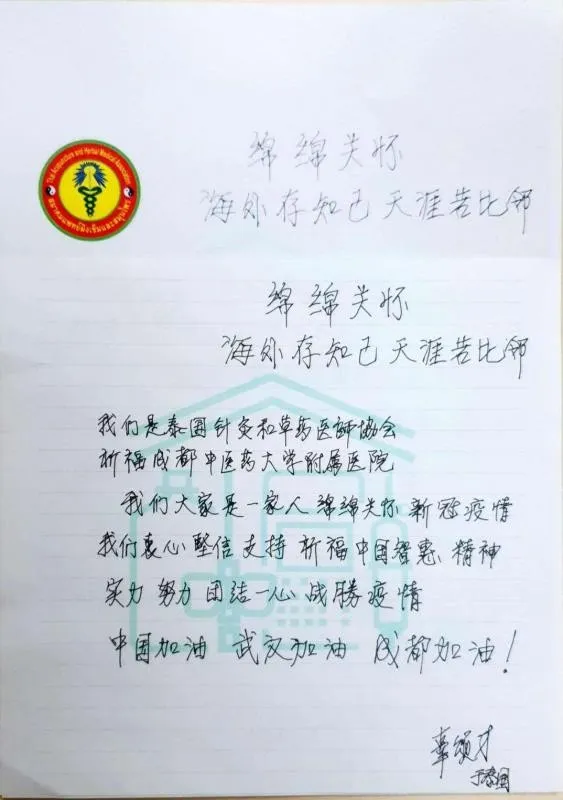 Thai Acupuncture and Herbal Medical Association
สมาคมแพทย์ฝังเข็มและสมุนไพร
绵绵关怀
海外存知己 天涯若比邻
绵绵关怀
海外存知己 天涯若比邻
我们是泰国针灸和草药医師協会
祈福成都中医药大学附属医院
我们大家是一家人 绵绵关怀 新冠疫情
我们衷心堅信 支持 祈福中国智惠 精神
实力 努力 团结一心 战勝疫情
中国加油 武汉加油 成都加油！
颂才
于泰国